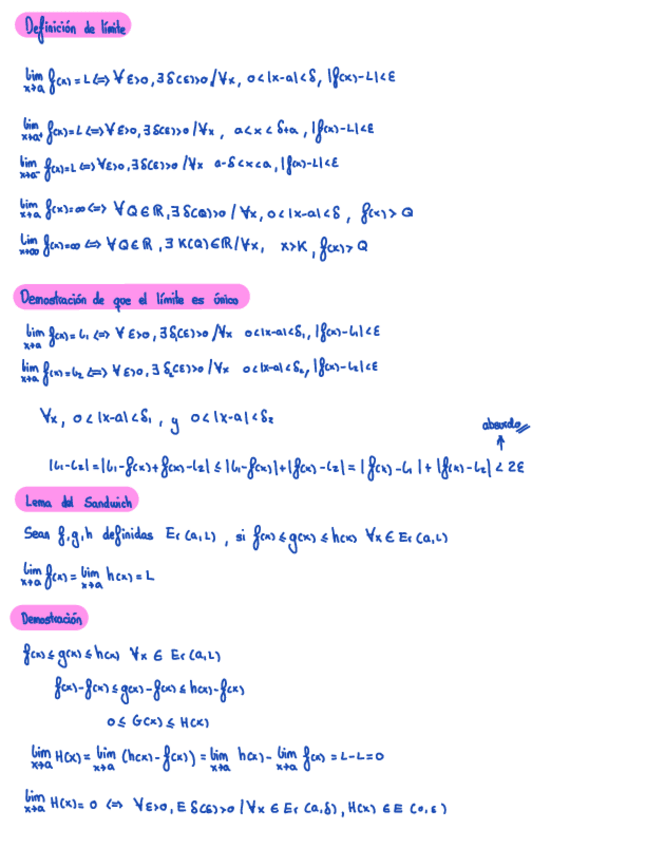 Definición de límite
lim x→a f(x)=L ⇔ ∀ε>0, ∃δ(ε)>0 /∀x, 0<|x-a|<δ, |f(x)-L|<ε
lim x→a⁺ f(x)=L ⇔ ∀ε>0, ∃δ(ε)>0 /∀x, a<x<δ+a, |f(x)-L|<ε
lim x→a⁻ f(x)=L ⇔ ∀ε>0, ∃δ(ε)>0 /∀x a-δ<x<a, |f(x)-L|<ε
lim x→a f(x)=∞ ⇔ ∀Q∈ℝ, ∃δ(Q)>0 / ∀x, 0<|x-a|<δ, f(x)>Q
lim x→∞ f(x)=∞ ⇔ ∀Q∈ℝ, ∃K(Q)∈ℝ/∀x, x>K, f(x)>Q
Demostración de que el límite es único
lim x→a f(x)=L₁ ⇔ ∀ε>0, ∃δ₁(ε)>0 /∀x 0<|x-a|<δ₁, |f(x)-L₁|<ε
lim x→a f(x)=L₂ ⇔ ∀ε>0, ∃δ₂(ε)>0 /∀x 0<|x-a|<δ₂, |f(x)-L₂|<ε
∀x, 0<|x-a|<δ₁, y 0<|x-a|<δ₂
absurdo
↑
|L₁-L₂|=|L₁-f(x)+f(x)-L₂| ≤ |L₁-f(x)|+|f(x)-L₂|=|f(x)-L₁|+|f(x)-L₂| < 2ε
Lema del Sandwich
Sean f,g,h definidas Er(a,L), si f(x)≤g(x)≤h(x) ∀x∈Er(a,L)
lim x→a f(x)= lim x→a h(x)=L
Demostración
f(x)≤g(x)≤h(x) ∀x∈Er(a,L)
f(x)-f(x)≤g(x)-f(x)≤h(x)-f(x)
0≤G(x)≤H(x)
lim x→a H(x)= lim x→a (h(x)-f(x))= lim x→a h(x)- lim x→a f(x)=L-L=0
lim x→a H(x)=0 ⇔ ∀ε>0, E δ(ε)>0 /∀x∈Er(a,δ), H(x)∈E(0,ε)